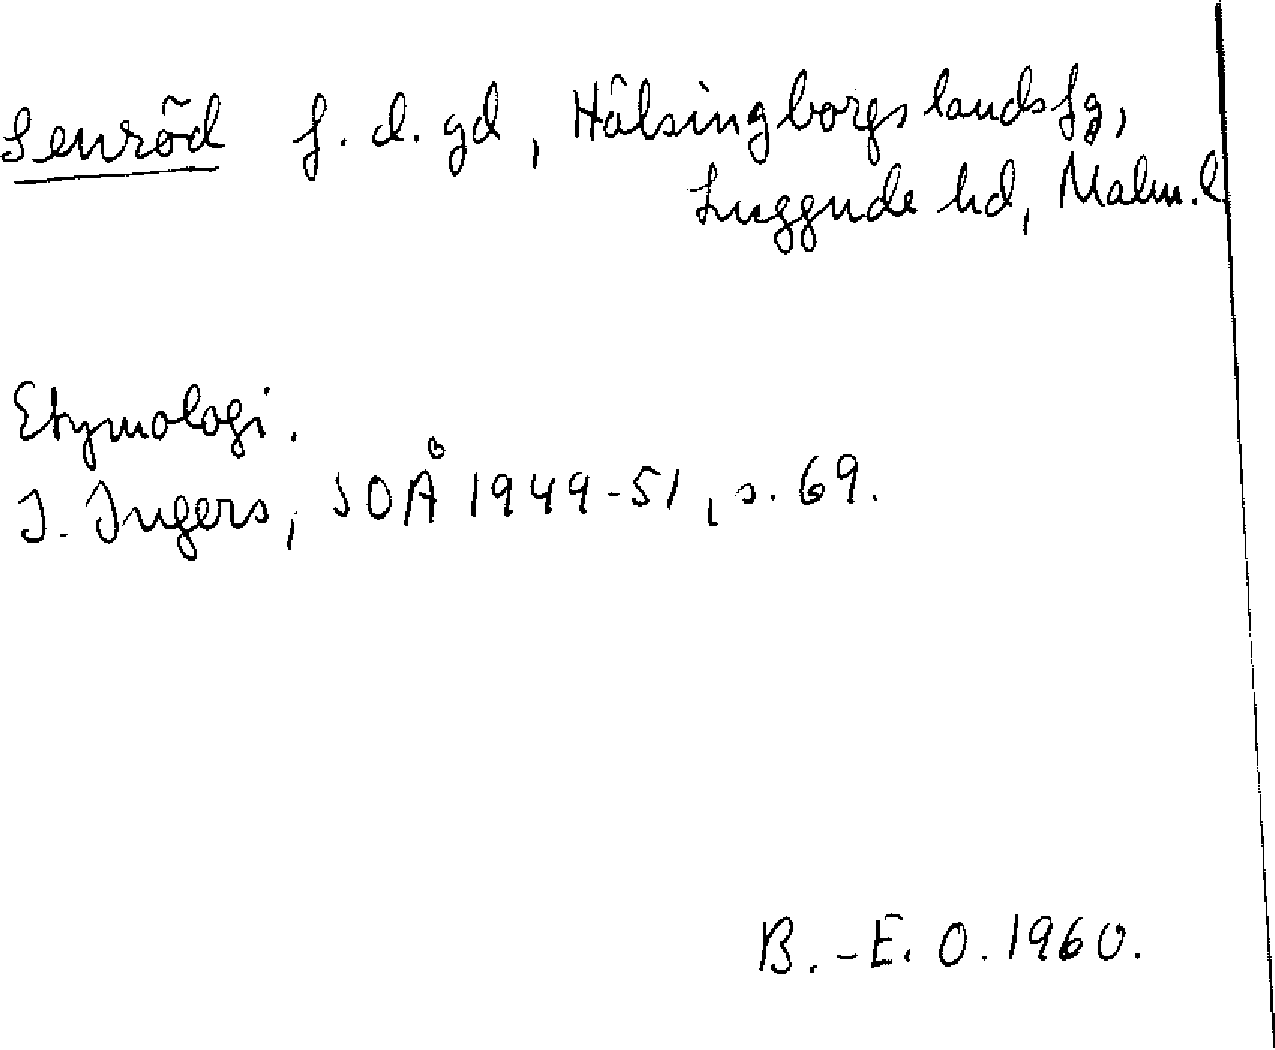 Senröd f. d. gd, Hälsingborgs landsfg,
Luggude hd, Malm. l
Etymologi.
I. Ingers, SOÅ 1949-51, s. 69.
B.-E. O. 1960.